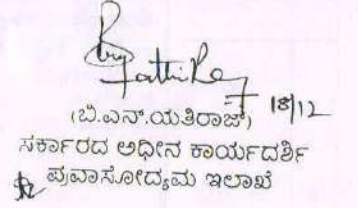 18/12
(ಬಿ.ಎನ್.ಯತಿರಾಜ್)
ಸರ್ಕಾರದ ಅಧೀನ ಕಾರ್ಯದರ್ಶಿ
ಪ್ರವಾಸೋದ್ಯಮ ಇಲಾಖೆ